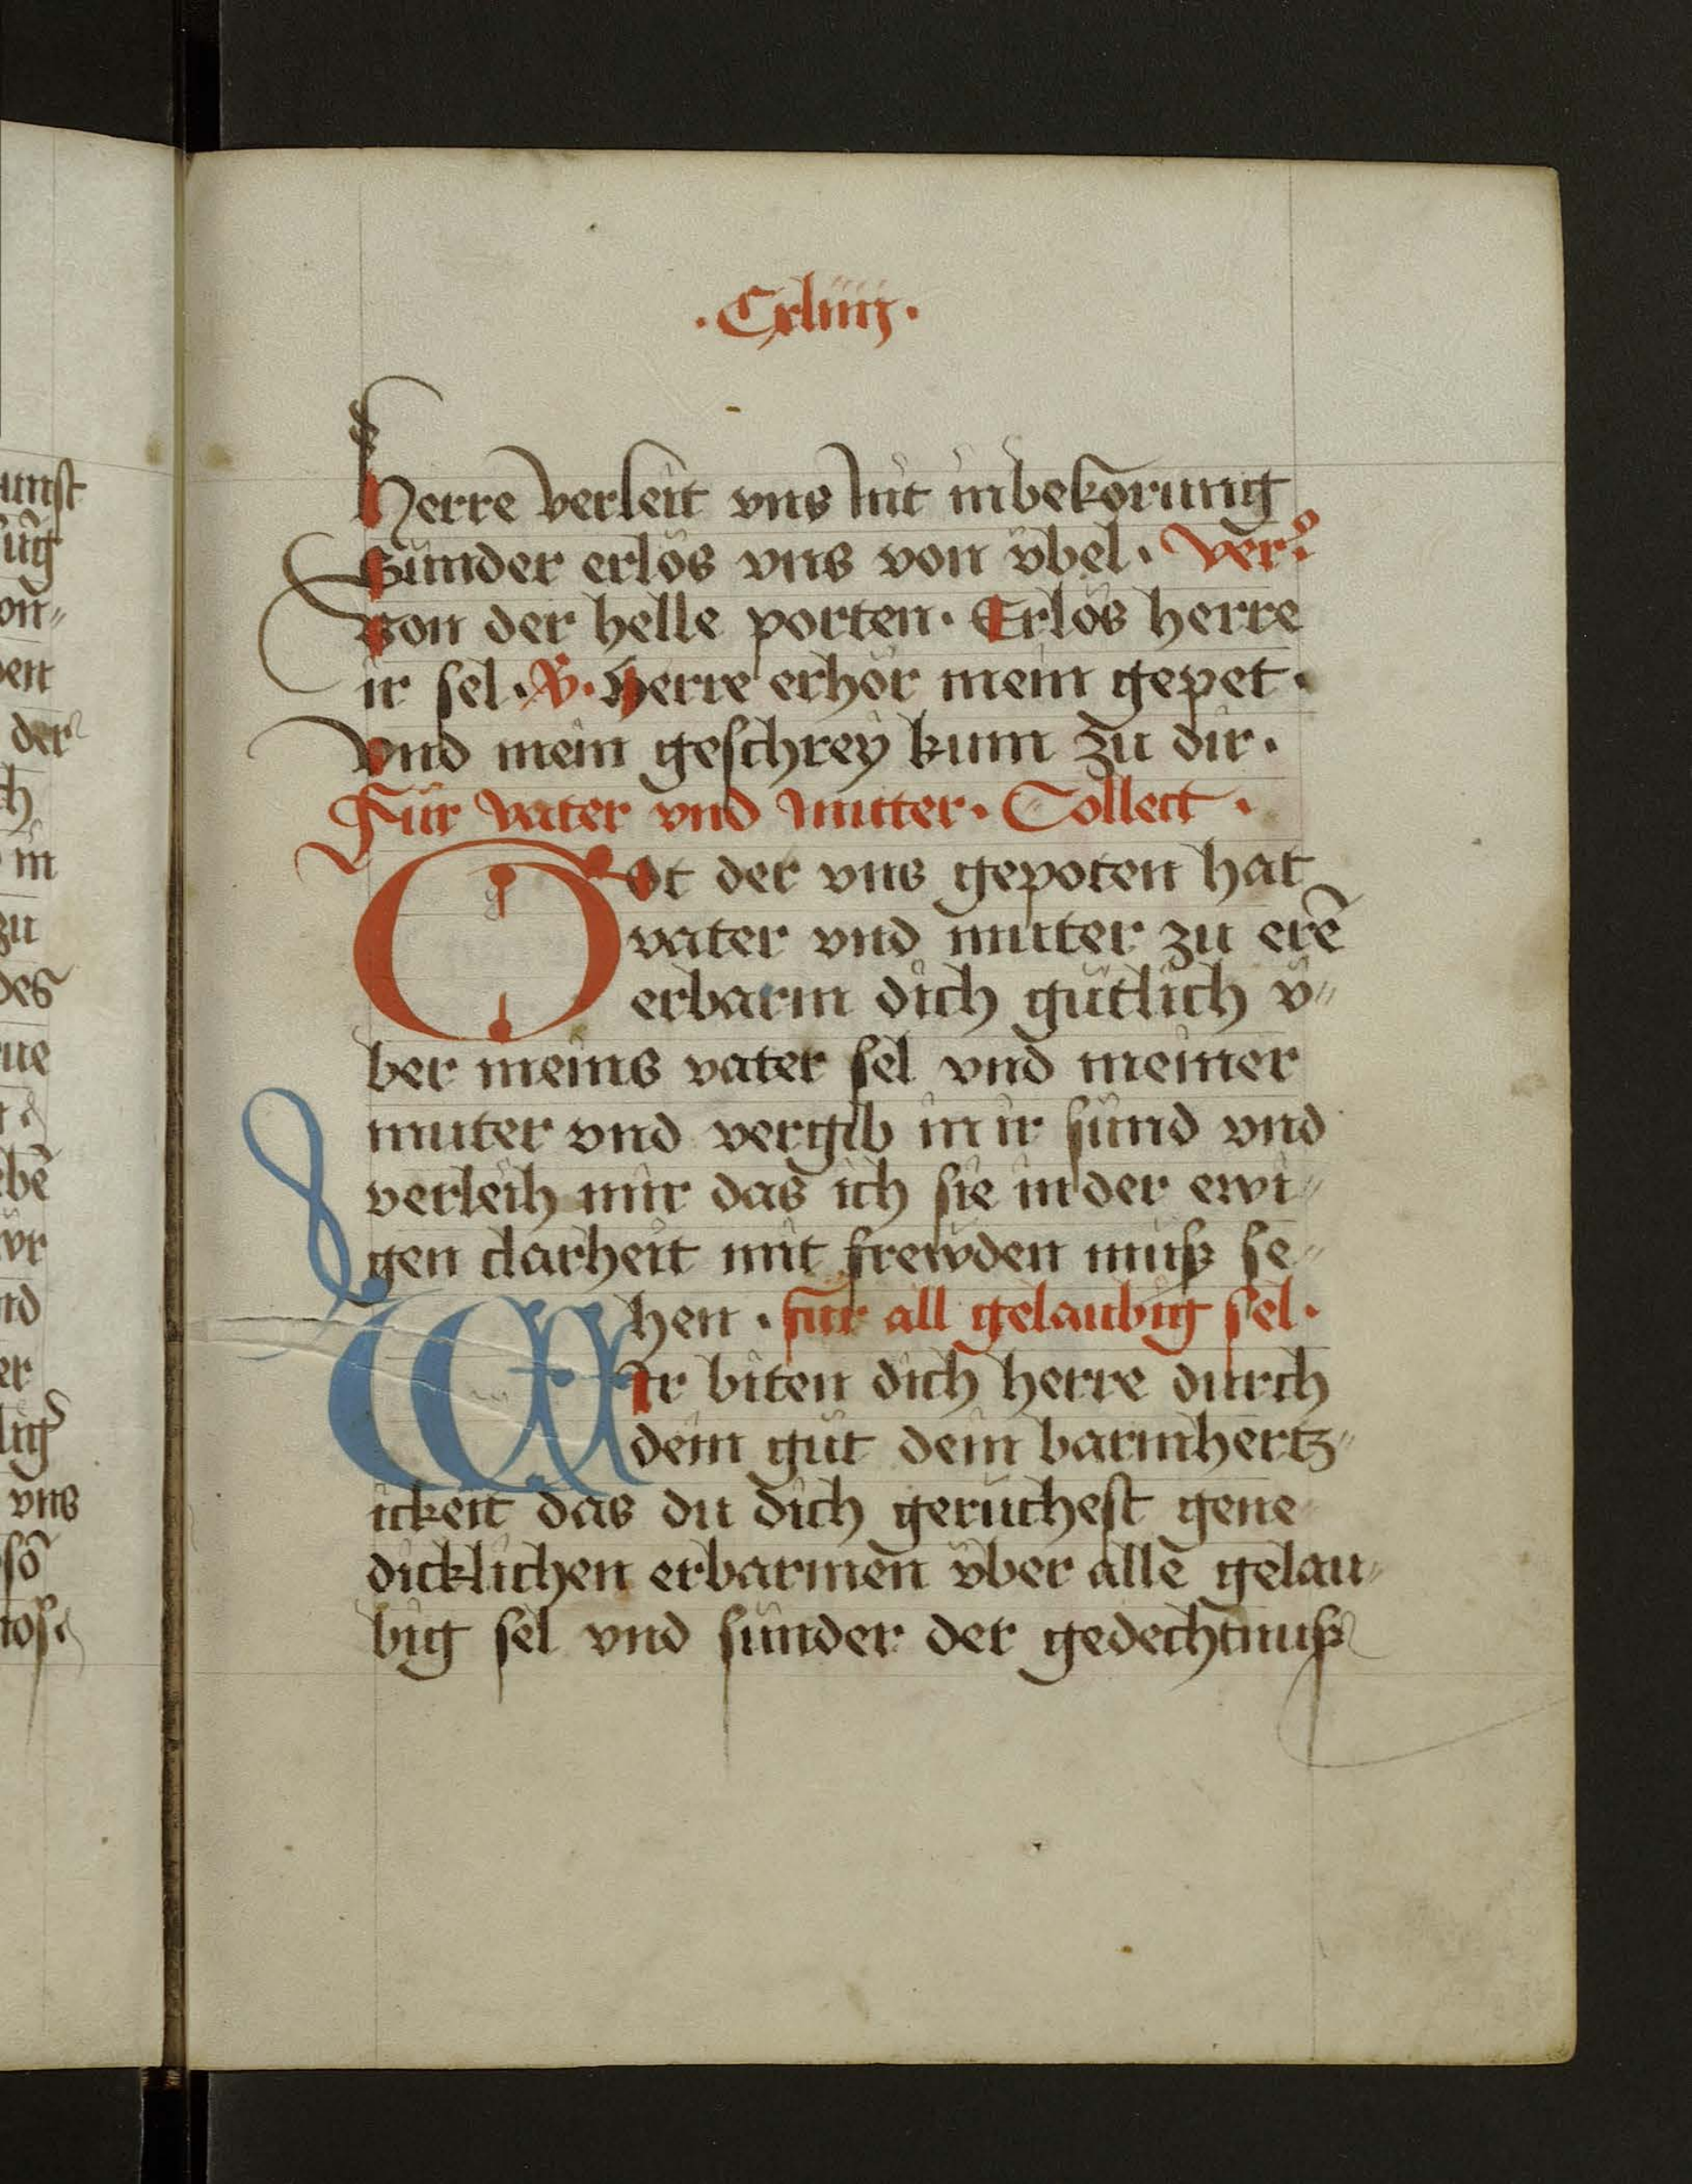 unst
üg
on„
en
der
ch
in
zu
des
ne
bē
wr
nd
er
lig
vns
sō
.Cxliiij.
Herre verleit vns nit in bekorung
Sünder erlös vns von v̈bel. ver
Von der helle porten. Erlös herre
ir sel. R. Herre erhör mein gepet.
Vnd mein geschrey kum zu dir.
Für vater vnd mutter. Collect.
Got der vns gepoten hat
vater vnd mutter zu erē
erbarm dich gütlich v̈„
ber meins vater sel vnd meiner
muter vnd vergib in ir sünd vnd
verleih mir das ich sie in der ewi„
gen clarheit mit frewden muß se„
hen. für all gelaubig sel.
WIr biten dich herre durch
dein güt dein barmhertz„
ickeit das du dich geruchest gene
dicklichen erbarmen v̈ber alle gelau„
big sel vnd sünder der gedechtnuß